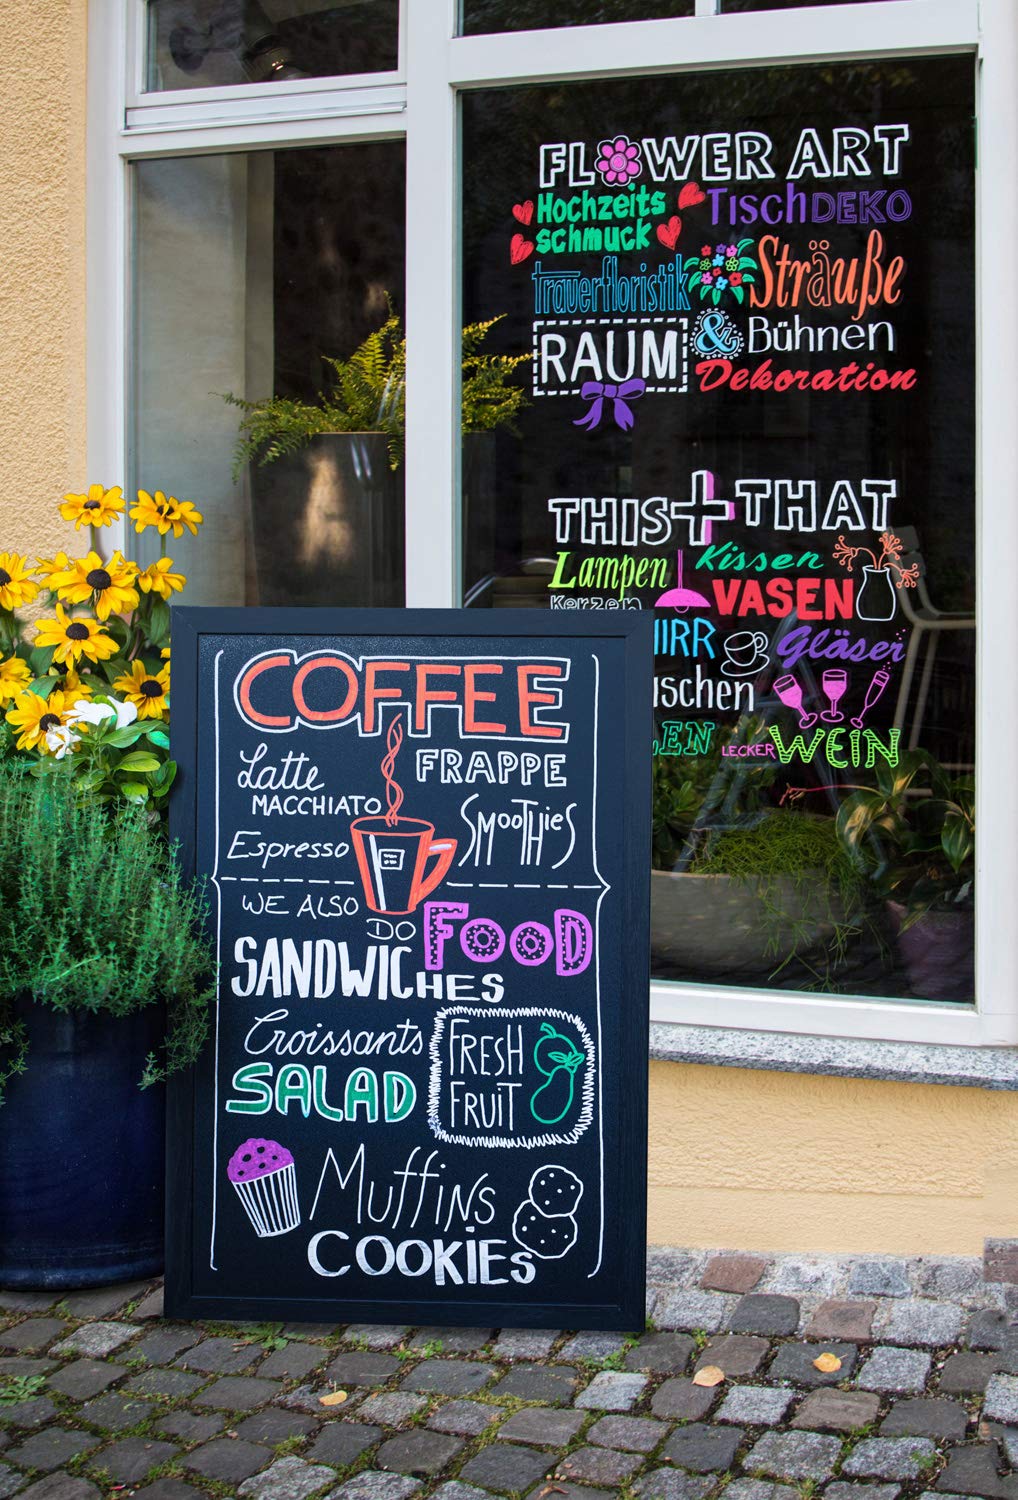 FLOWER ART
Hochzeits
schmuck
TischDEKO
trauerfloristik
Sträuße
RAUM & Bühnen
Dekoration
THIS + THAT
Lampen
Kissen
Kerzen
VASEN
Gläser
LECKER WEIN
COFFEE
Latte
MACCHIATO
FRAPPE
Espresso
SMOOTHIES
WE ALSO
DO FOOD
SANDWICHES
Croissants
SALAD
FRESH
FRUIT
MUFFINS
COOKIES